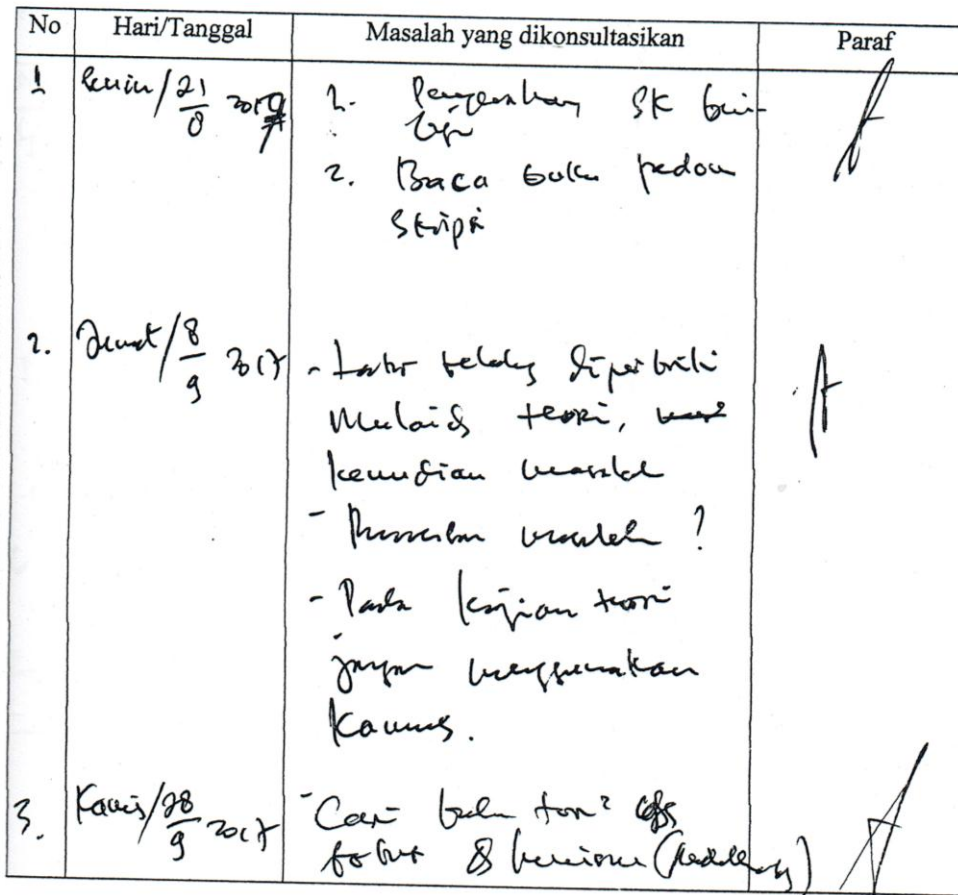 No Hari/Tanggal Masalah yang dikonsultasikan Paraf
1 Senin/21/8 2017 1. SK bim-
2. Baca buku pedom
Skripsi
2. Jumat/8/9 2017 - Latar belakg diperbaiki
Mulai dg teori,
kemudian masalah
- Rumusan masalah ?
- Pada kajian teori
jangan menggunakan
Kamus.
3. Kamis/28/9 2017 - Cari buku teori2